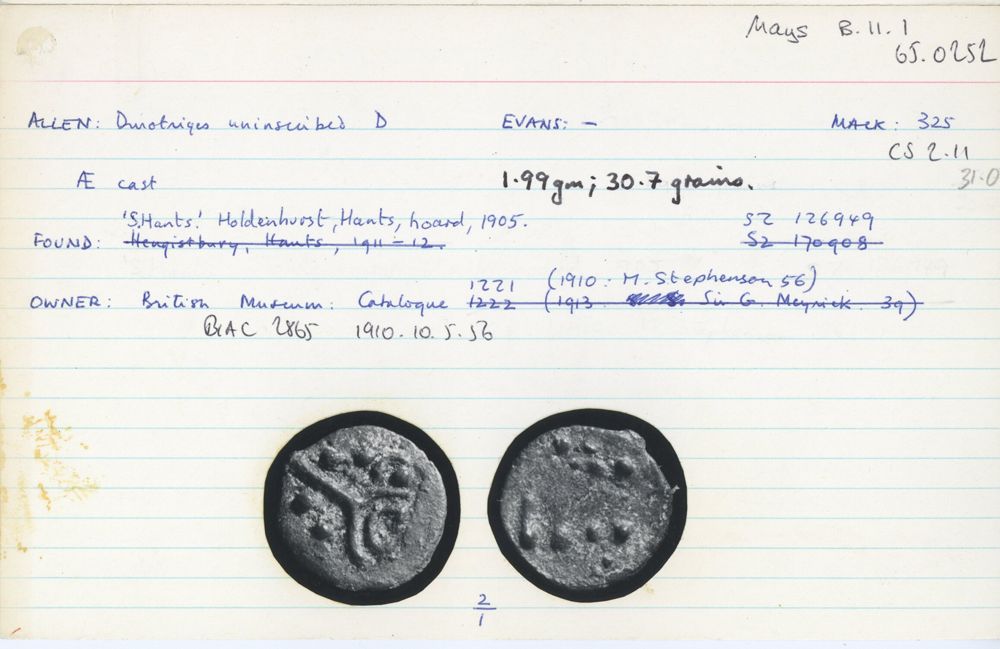 Mays B.11.1
65.0252
ALLEN: Durotriges uninscribed D EVANS: - MACK: 325
CS 2.11
Æ cast 1.99gm; 30.7 grains. 31.0
'S.Hants.' Holdenhurst, Hants, hoard, 1905. SZ 126949
FOUND: Hengistbury, Hants, 1911-12. SZ 170908
1221 (1910: M. Stephenson 56)
OWNER: British Museum: Catalogue 1222 (1913 Sir G. Meyrick. 39)
BMC 2865 1910.10.5.56
2
1